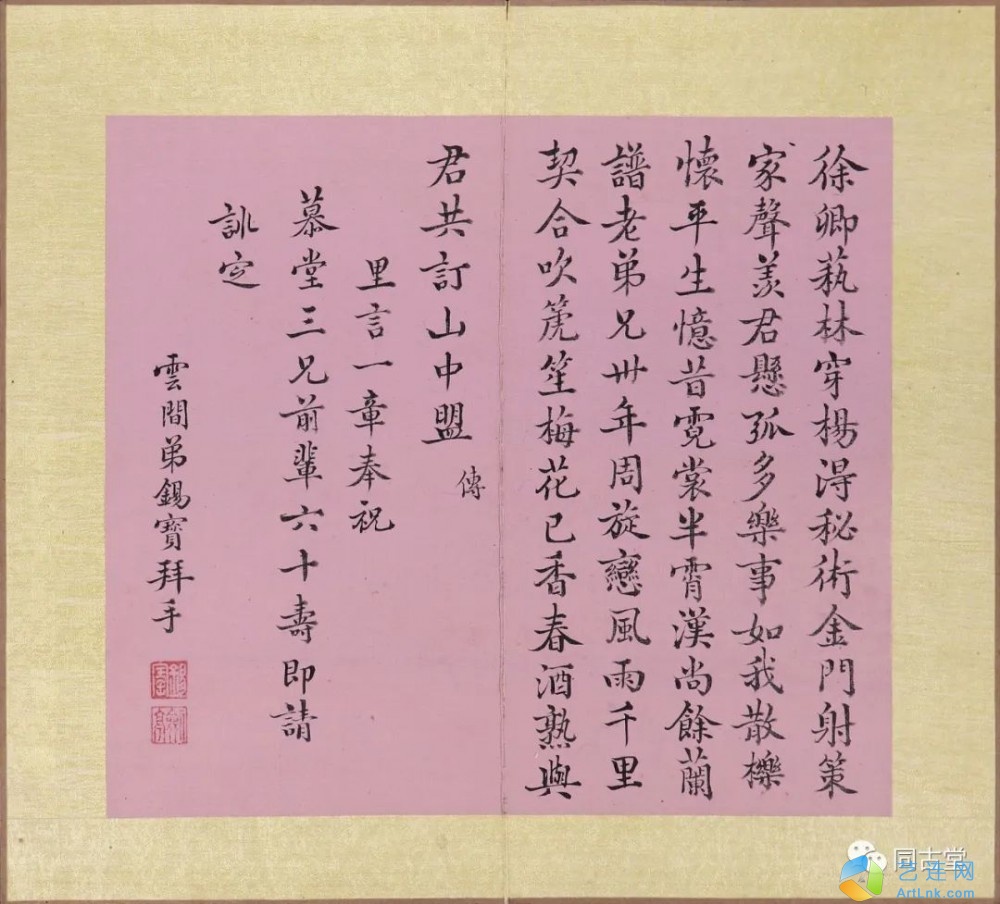 徐卿蓺林穿楊淂秘術金門射策
家聲羨君懸弧多樂事如我散櫟
懷平生憶昔霓裳半霄漢尚餘蘭
譜老弟兄卅年周旋戀風雨千里
契合吹篪笙梅花已香春酒熟與
君共訂山中盟
傳
里言一章奉祝
慕堂三兄前輩六十壽即請
訿定
雲間弟錫寶拜手
同古堂
艺连网
ArtLnk.com